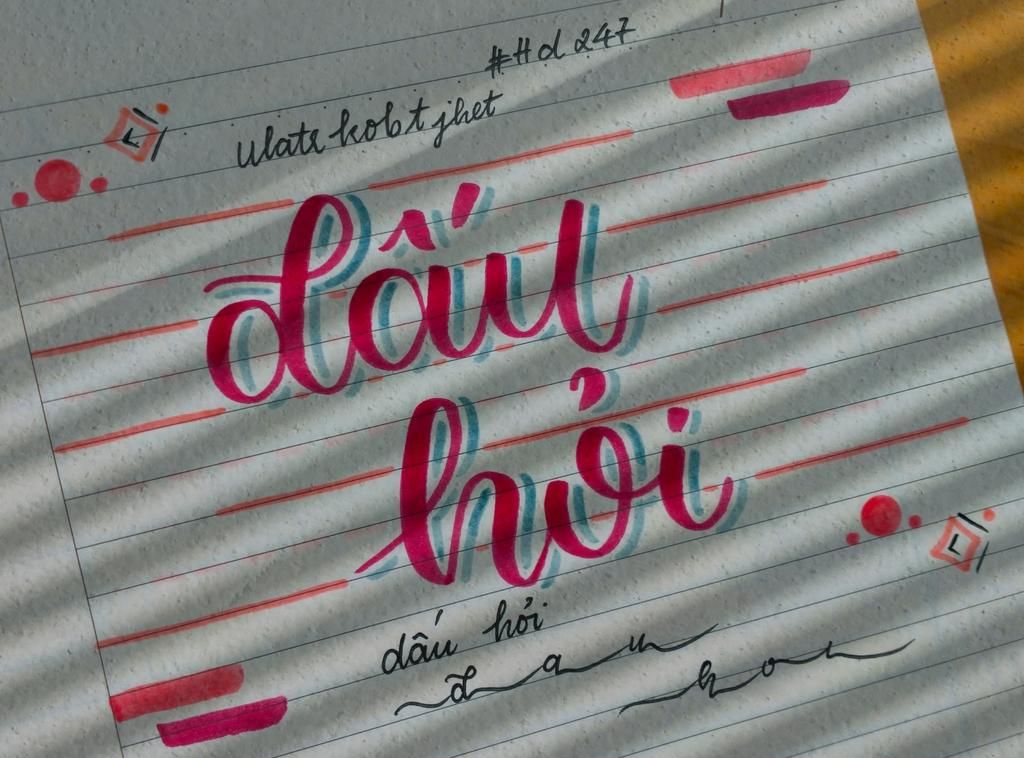 #Hd 247
ulate kobt jhet
dấu
hỏi
dấu hỏi
dau hoi